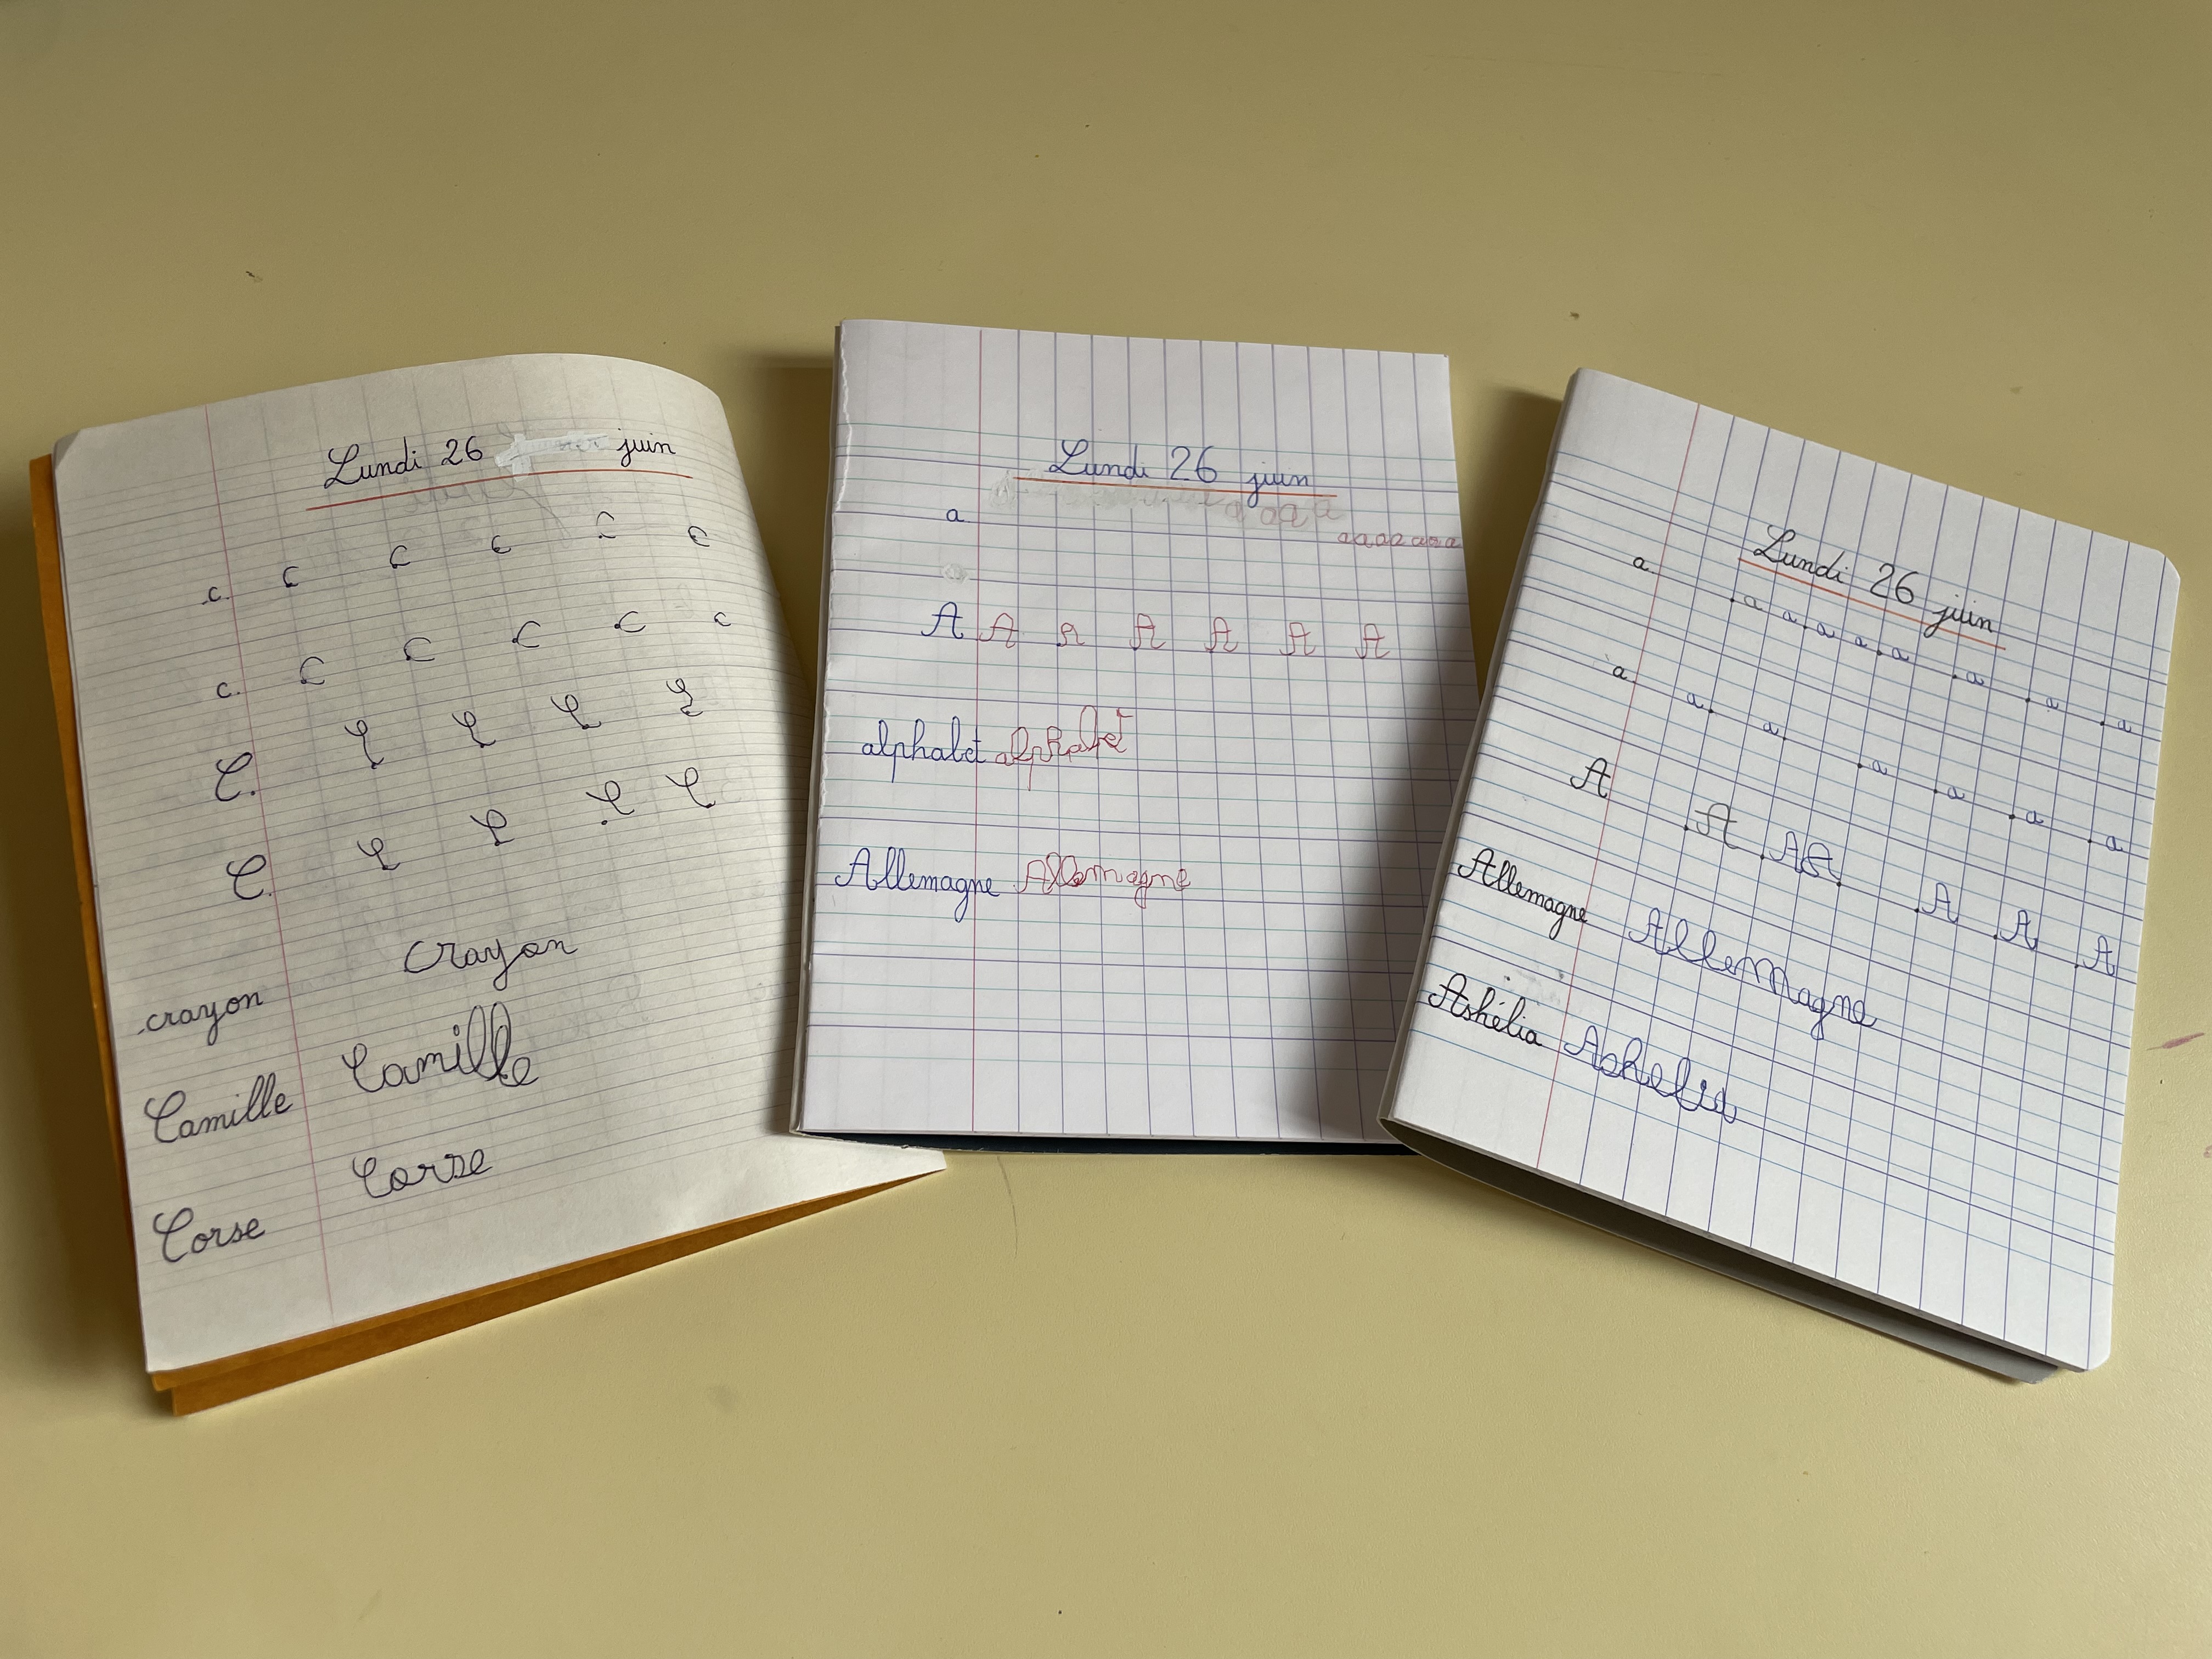 Lundi 26 juin
c c c c c c
c c c c c c
C C C C C
C C C C C
crayon crayon
Camille Camille
Corse Corse
Lundi 26 juin
a a a a a
a a a a a a a
A A A A A A A
alphabet alphabet
Allemagne Allemagne
Lundi 26 juin
a a a a a a a a a
a a a a a a a
A A A A A A A
Allemagne AlleMagne
Ashélia Ashelia